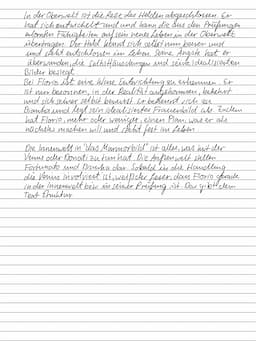 In der Oberwelt ist die Reise des Helden abgeschlossen. Er
hat sich entwickelt und und kann die aus den Prüfungen
Fähigkeiten auf sein neues Leben in der Oberwelt
übertragen. Der Held kennt sich selbst nun besser und
und steht entschlossen im Leben. Seine Ängste hat er
überwunden, die Selbsttäuschungen und seine idealisierten
Bilder besiegt.
Bei Florio ist eine Entwicklung zu erkennen. Er
ist nun besonnen, in der Realität angekommen, bekehrt
und sich seiner selbst bewusst. Er
Bianka und legt sein idealisiertes Frauenbild ab. Zudem
hat Florio, mehr oder weniger, einen Plan, was er als
nächstes machen will und steht fest im Leben
Die Innenwelt in "das Marmorbild" ist alles, was mit der
Venus oder Donati zu tun hat. Die Außenwelt stellen
Fortunato und Bianka dar. Sobald in die Handlung
die Venus involviert ist, weiß der Leser, dass Florio gerade
in der Innenwelt bzw. in seiner Prüfung ist. Das gibt dem
Text Struktur.